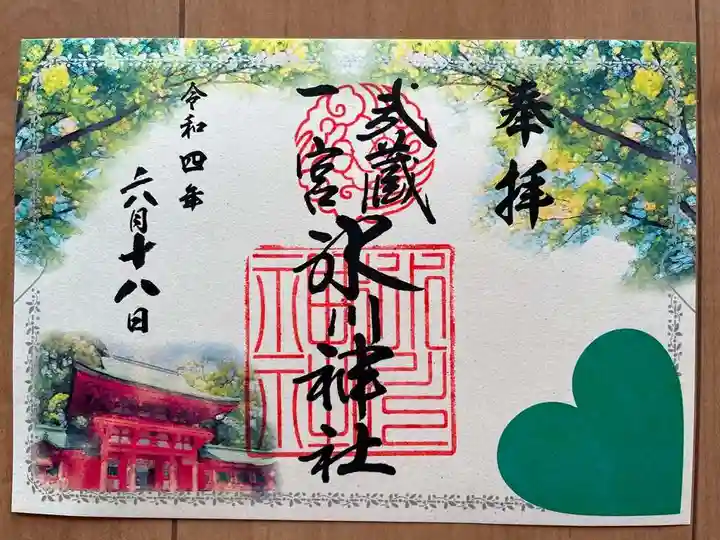 奉拝
武蔵
一宮
氷川神社
令和四年
六月十八日